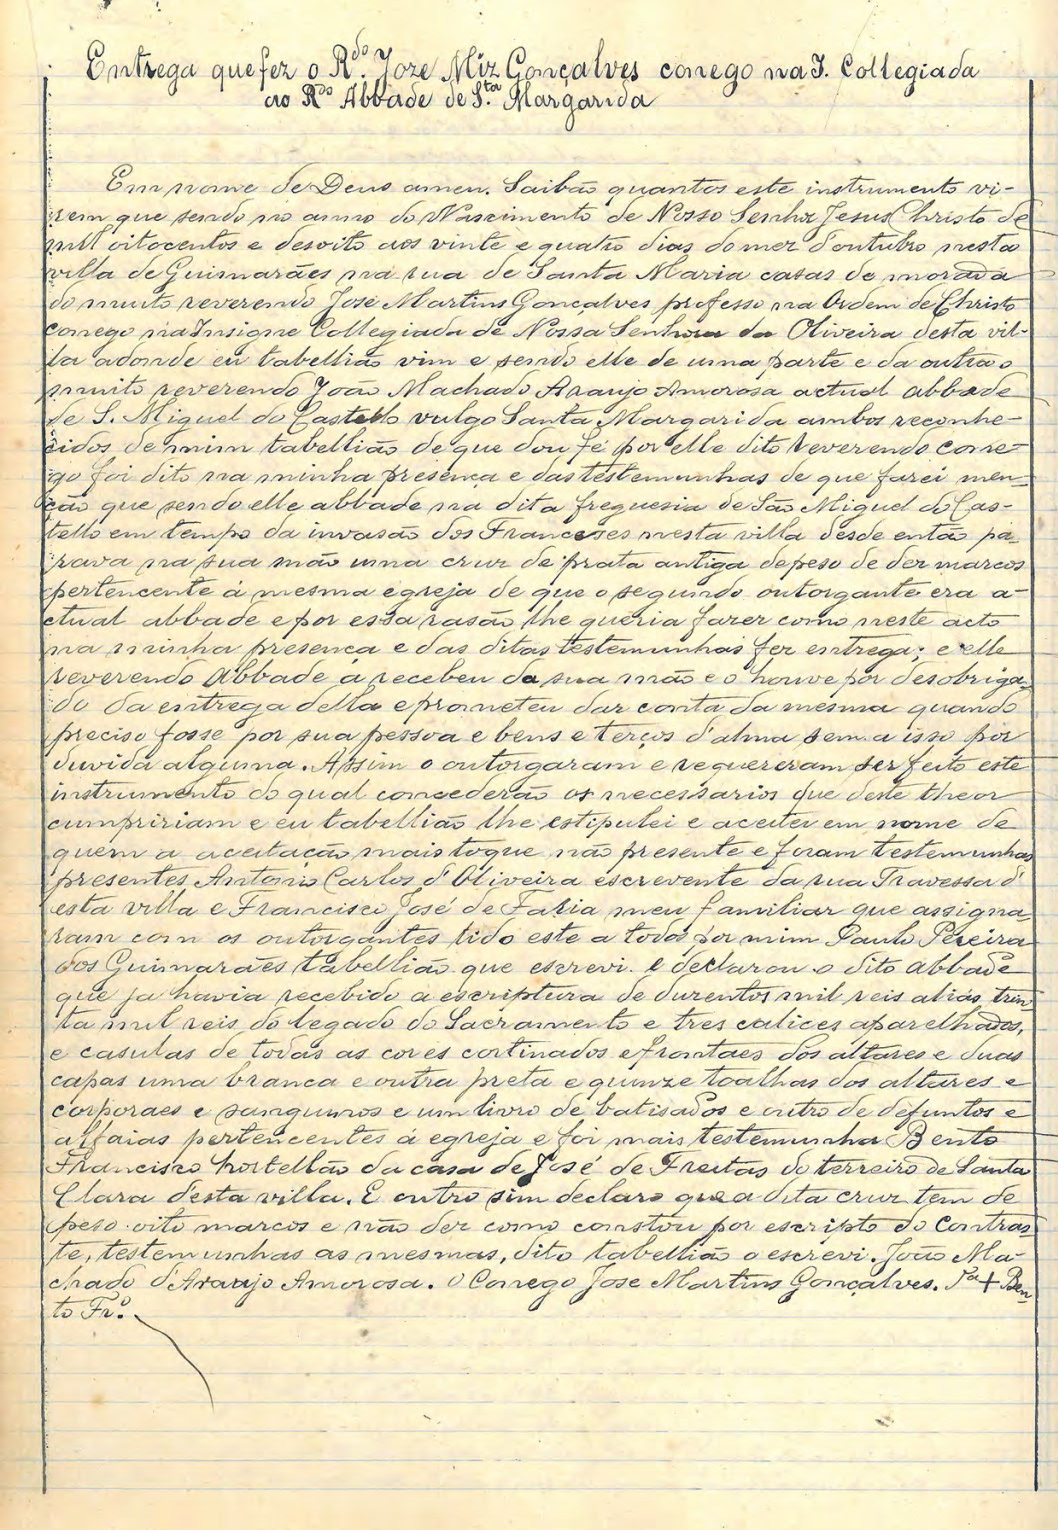 Entrega que fez o R.do Joze Miz Gonçalves conego na I. Collegiada
ao R.do Abbade de S.ta Margarida
Em nome de Deus amen. Saibão quantos este instrumento vi-
rem que sendo no anno do Nascimento de Nosso Senhor Jesus Christo de
mil oitocentos e desoito aos vinte e quatro dias do mez d'outubro nesta
villa de Guimarães na rua de Santa Maria casas de morada
do muito reverendo José Martins Gonçalves professo na Ordem de Christo
conego na Insigne Collegiada de Nossa Senhora da Oliveira desta vil-
la adonde eu tabellião vim e sendo elle de uma parte e da outra o
muito reverendo João Machado Araujo Amorosa actual abbade
de S. Miguel do Castello vulgo Santa Margarida ambos reconhe-
cidos de mim tabellião de que dou fé por elle dito reverendo cone-
go foi dito na minha presença e das testemunhas de que farei men-
ção que sendo elle abbade na dita freguesia de São Miguel do Cas-
tello em tempo da invasão dos Franceses nesta villa desde então pa-
rava na sua mão uma cruz de prata antiga de peso de dez marcos
pertencente á mesma egreja de que o segundo outorgante era a-
ctual abbade e por essa rasão lhe queria fazer como neste acto
na minha presença e das ditas testemunhas fez entrega; e elle
reverendo Abbade a recebeu da sua mão e o houve por desobriga-
do da entrega della e prometeu dar conta da mesma quando
preciso fosse por sua pessoa e bens e terços d'alma sem a isso pôr
duvida alguma. Assim o outorgaram e requereram ser feito este
instrumento do qual concederão os necessarios que deste theor
cumpririam e eu tabellião lhe estipulei e aceitei em nome de
quem a aceitação mais toque não presente e foram testemunhas
presentes Antonio Carlos d'Oliveira escrevente da rua Travessa d'
esta villa e Francisco José de Faria meu familiar que assigna-
ram com os outorgantes lido este a todos por mim Paulo Pereira
dos Guimarães tabellião que escrevi. E declarou o dito abbade
que ja havia recebido a escriptura de duzentos mil reis aliás trin-
ta mil reis do legado do Sacramento e tres calices aparelhados,
e casulas de todas as cores cortinados e frontaes dos altares e duas
capas uma branca e outra preta e quinze toalhas dos altares e
corporaes e sanguinos e um livro de batisados e outro de defuntos e
alfaias pertencentes á egreja e foi mais testemunha Bento
Francisco hortellão da casa de José de Freitas do terreiro de Santa
Clara d'esta villa. E outro sim declaro que a dita cruz tem de
peso oito marcos e não dez como constou por escripto do Contras-
te, testemunhas as mesmas, dito tabellião o escrevi. João Ma-
chado d'Araujo Amorosa. O Conego Jose Martins Gonçalves. T.a + Ben-
to Fr.o